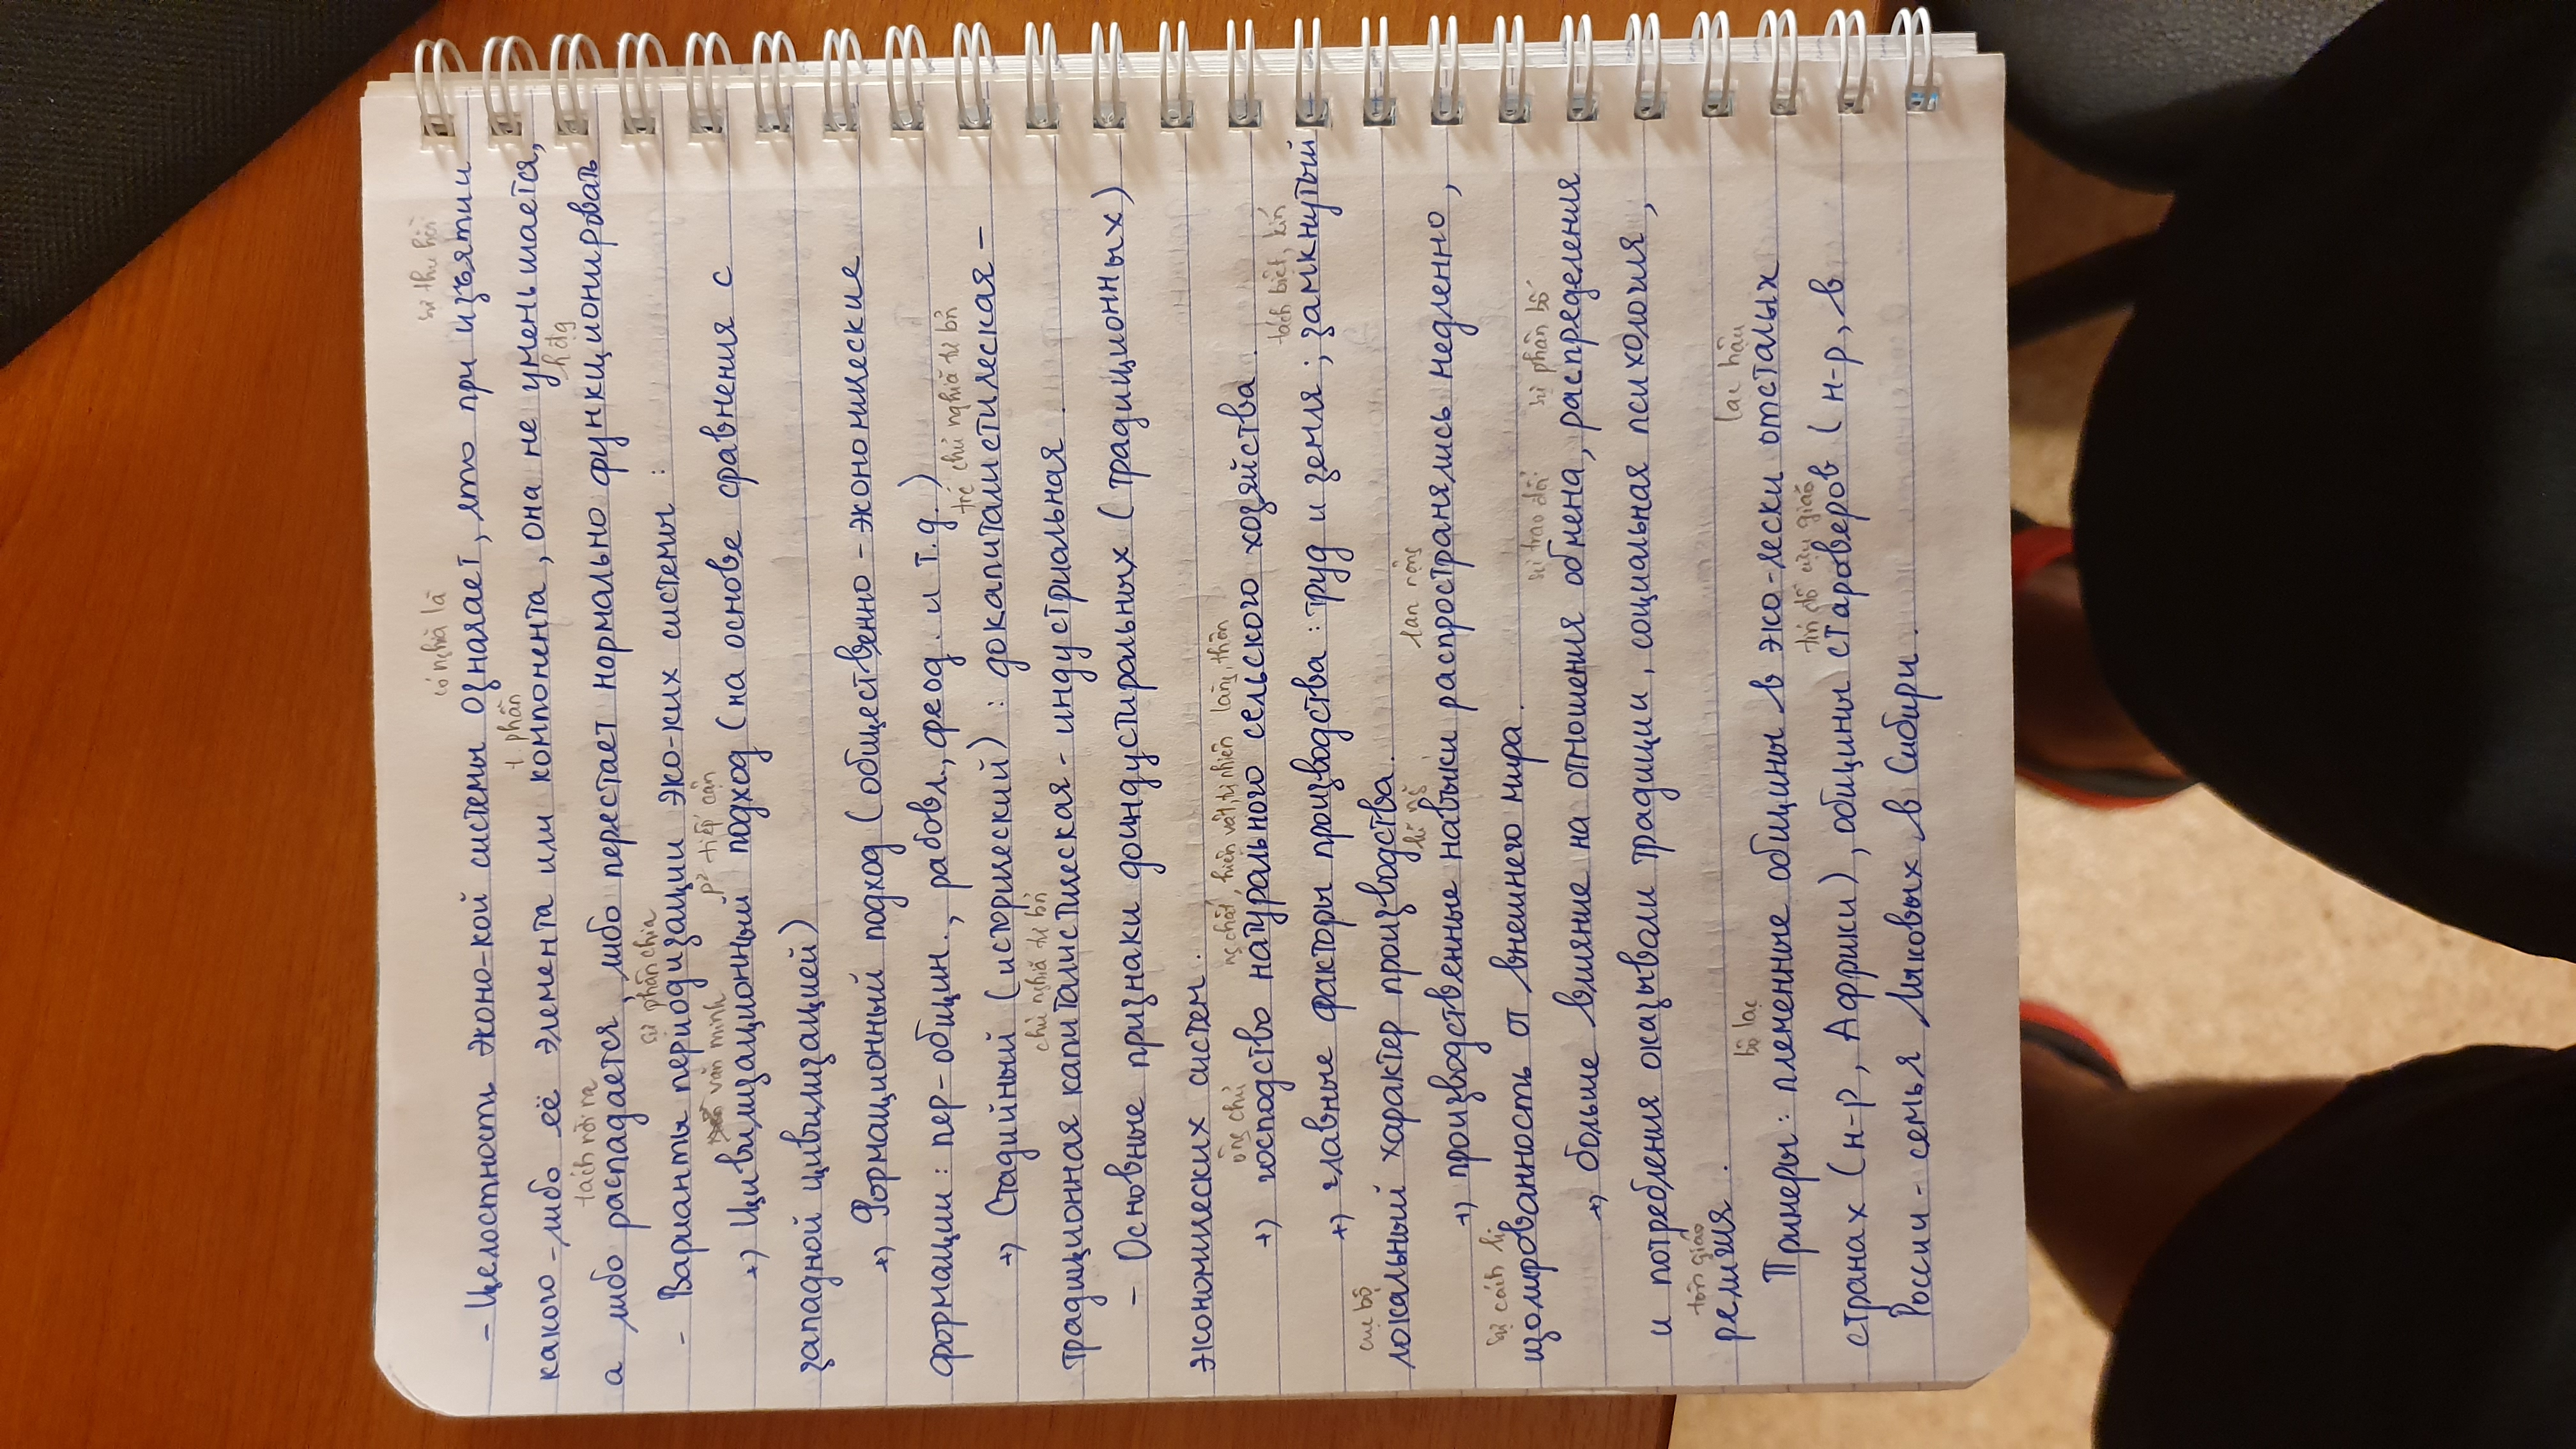 có nghĩa là sự thu hồi
- Целостность эконо-кой системы означает, что при изъятии
t phần
какого-либо её элемента или компонента, она не уменьшается,
tách rời ra hđg
а либо распадается, либо перестает нормально функционировать
sự phân chia
- Варианты периодизации эко-ких системы :
văn minh p² tiếp cận
+) Цивилизационный подход (на основе сравнения с
западной цивилизацией)
+) Формационный подход (общественно - экономические
формации : пер-общин., рабовл., феод. и т.д.)
trc chủ nghĩa tư bản
+) Стадийный (исторический) : докапиталистическая -
chủ nghĩa tư bản
традиционная капиталистическая - индустриальная .
- Основные признаки доиндустиральных (традиционных)
экономических систем .
ông chủ ng chất, hiện vật, tự nhiên làng, thôn
+) господство натурального сельского хозяйства .
tách biệt, kín
+) главные факторы производства : труд и земля ; замкнутый
cục bộ
локальный характер производства .
kĩ ng lan rộng
+) производственные навыки распространялись медленно ,
sự cách li
изолированность от внешнего мира .
sự trao đổi sự phân bố
+) больше влияние на отношения обмена, распределения
и потребления оказывали традиции, социальная психология ,
tôn giáo
религия .
bộ lạc lạc hậu
Примеры : племенные общины в эко-чески отсталых
tín đồ cựu giáo
странах (н-р, Африки), общины староверов (н-р, в
России - семья Лыковых в Сибири .